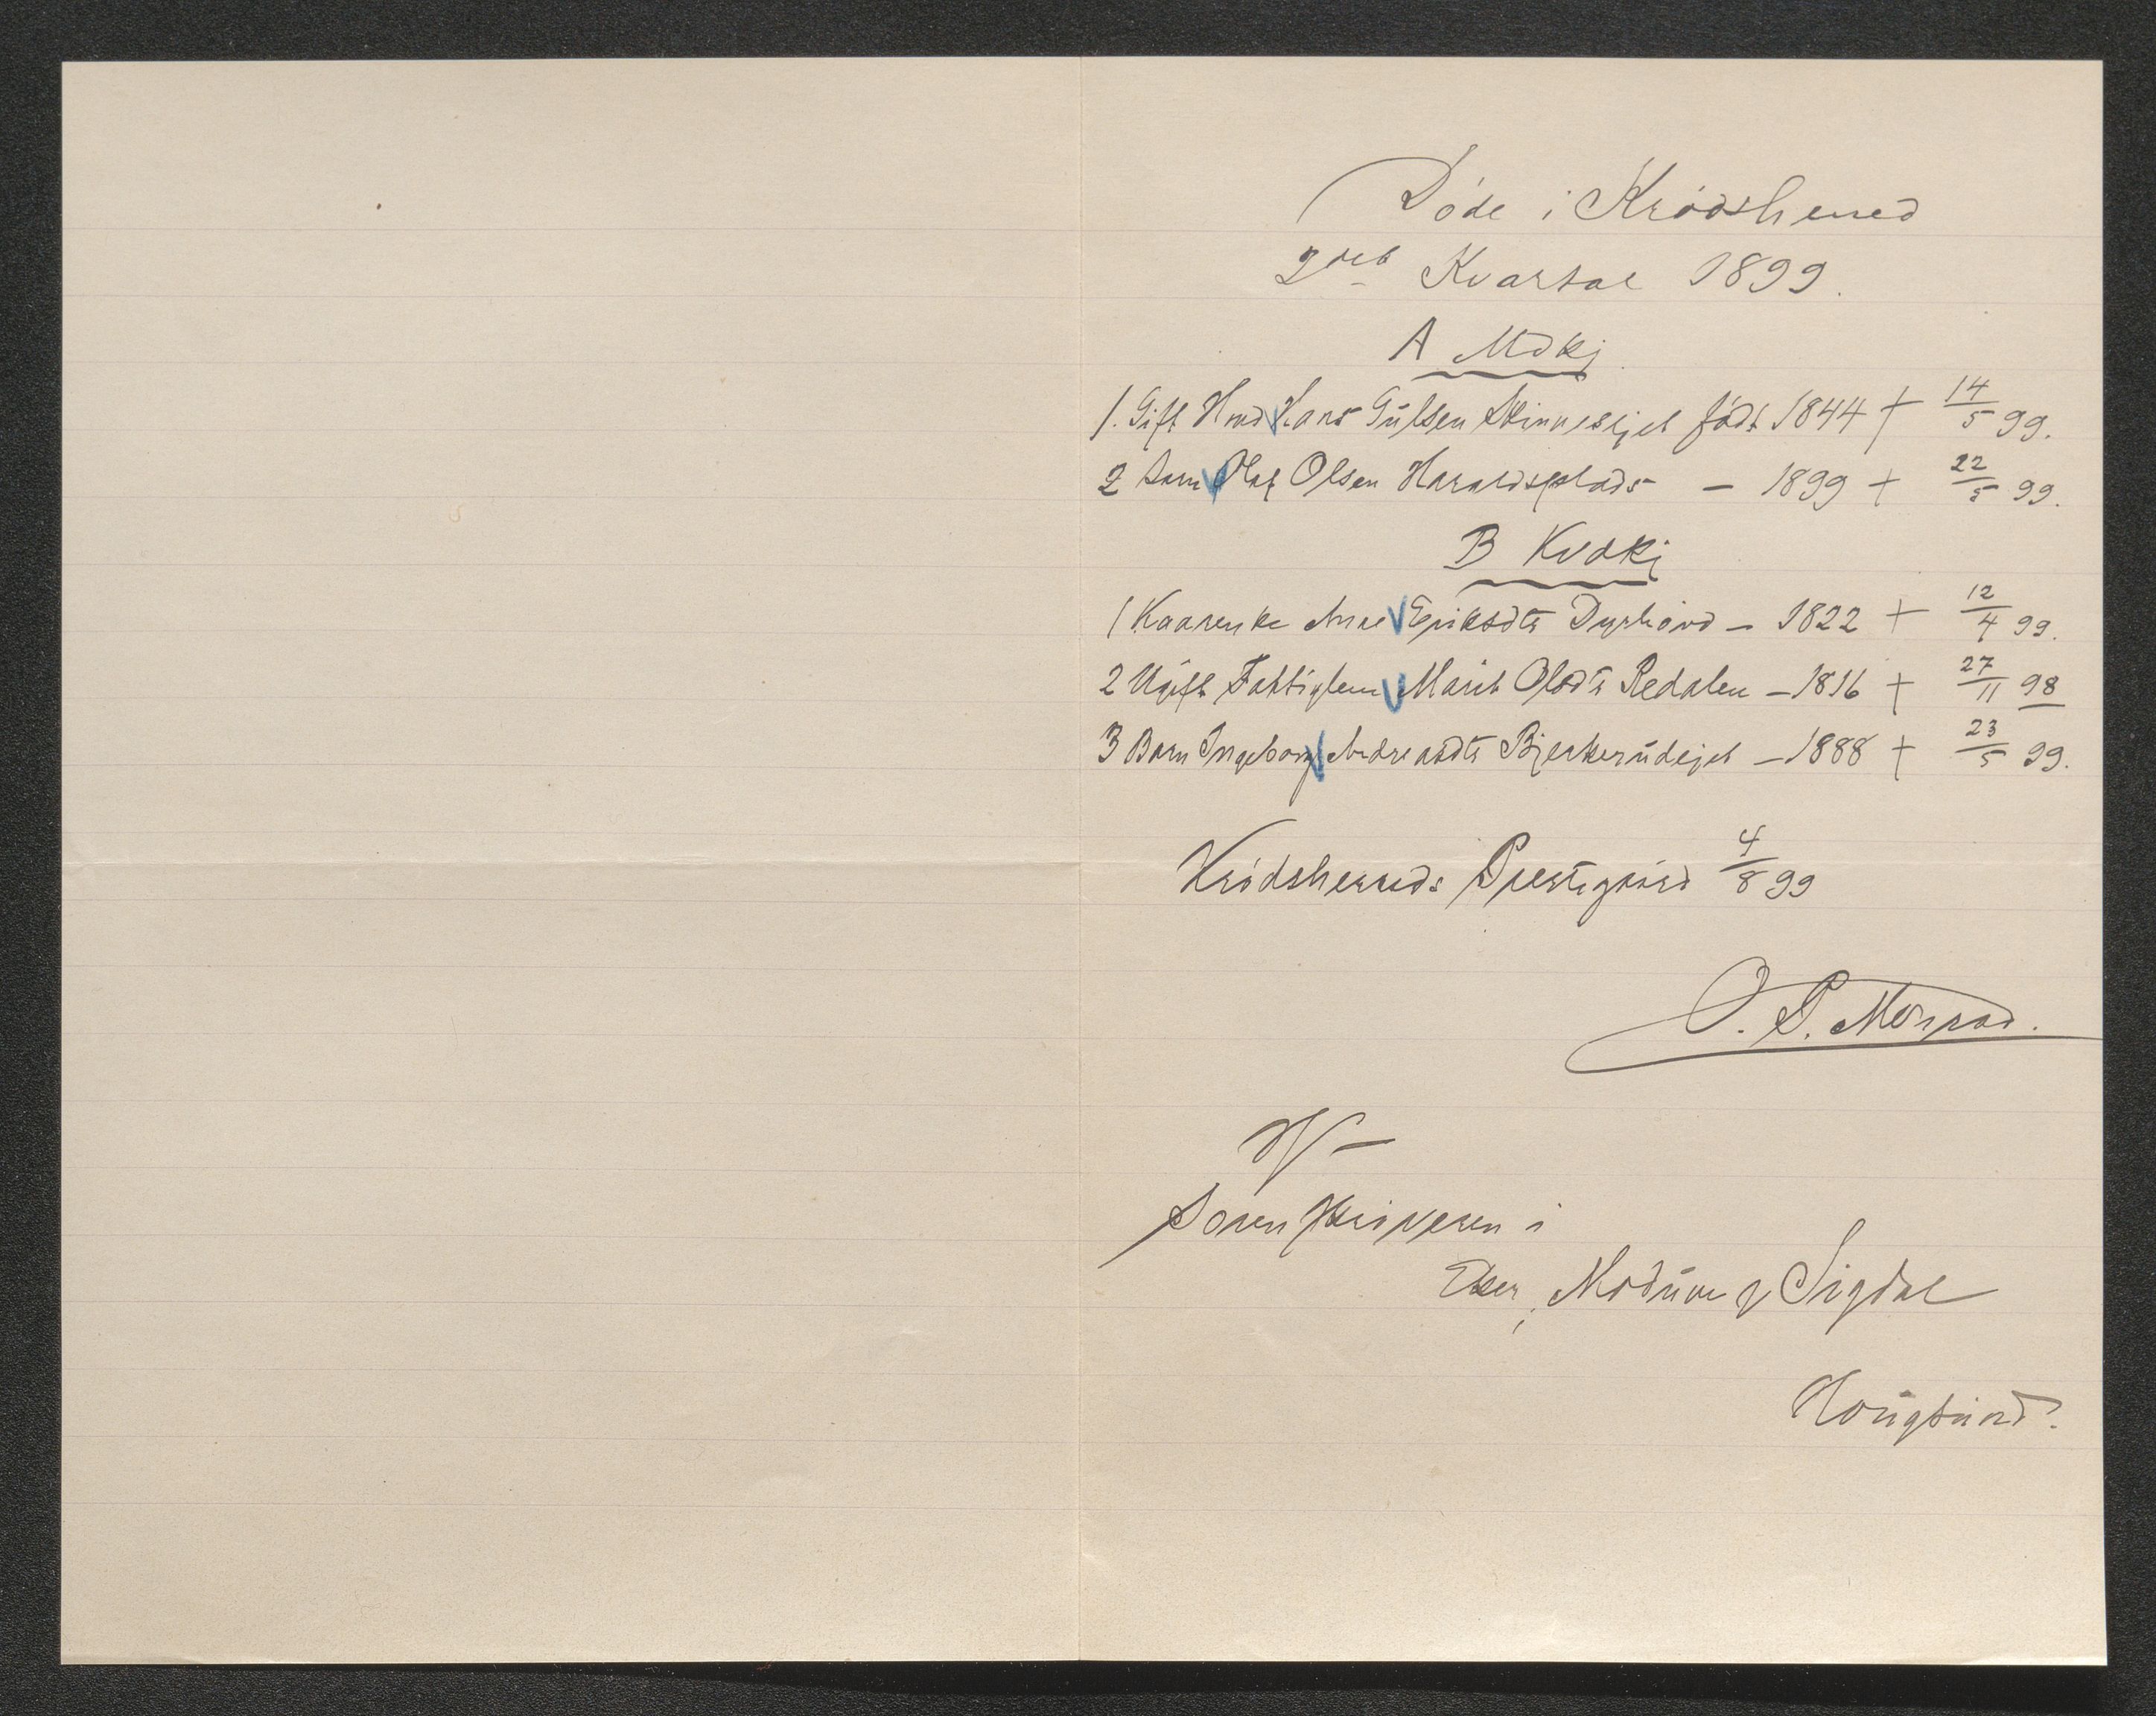 Døde i Krødsherred
2det Kvartal 1899.
A Mdkj
1. Gift Hmd Hans Gulsen Skinnesejet født 1844 + 14/5 99.
2 Barn Olaf Olsen Haraldsplads — 1899 + 22/5 99.
B Kvdkj
1 Kaarenke Anne Eriksdtr — 1822 + 12/4 99.
2 Ugift Fattiglem Marit Olsdtr Redalen — 1816 + 27/11 98
3 Barn Ingeborg Andreasdtr Bjerkerudejet — 1888 + 23/5 99.
Krødsherreds Prestegaard 4/8 99
O. P. Monrad.
Sorenskriveren i
Eker, Modum og Sigdal
Hougsund.